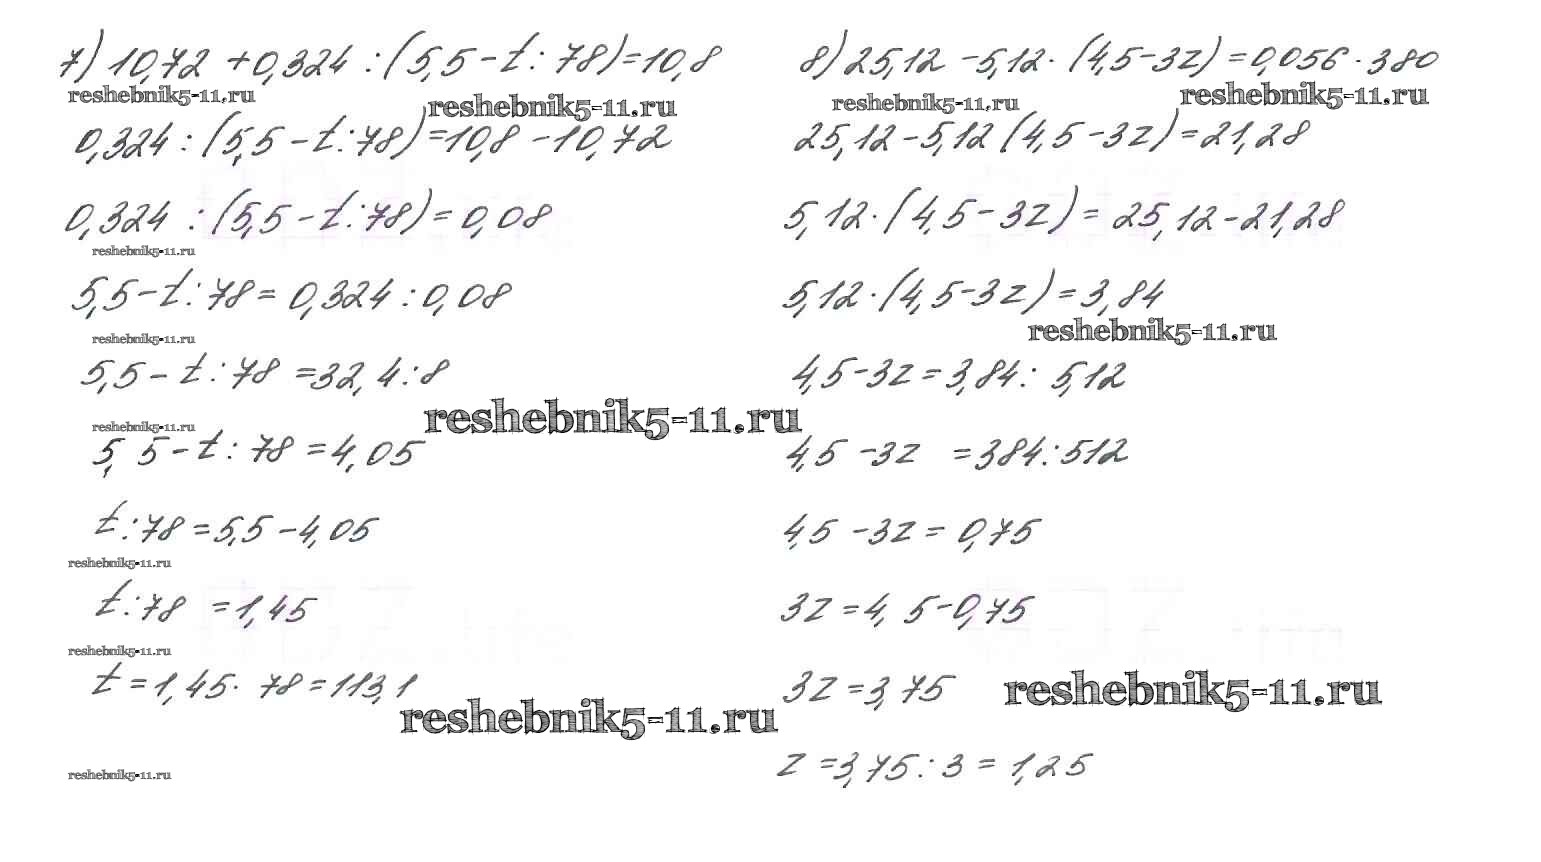 7) 10,72 + 0,324 : (5,5 - t : 78) = 10,8
reshebnik5-11.ru
reshebnik5-11.ru
0,324 : (5,5 - t : 78) = 10,8 - 10,72
0,324 : (5,5 - t : 78) = 0,08
reshebnik5-11.ru
5,5 - t : 78 = 0,324 : 0,08
reshebnik5-11.ru
5,5 - t : 78 = 32,4 : 8
reshebnik5-11.ru
reshebnik5-11.ru
5,5 - t : 78 = 4,05
t : 78 = 5,5 - 4,05
reshebnik5-11.ru
t : 78 = 1,45
reshebnik5-11.ru
t = 1,45 · 78 = 113,1
reshebnik5-11.ru
reshebnik5-11.ru
8) 25,12 - 5,12 · (4,5 - 3z) = 0,056 · 380
reshebnik5-11.ru
reshebnik5-11.ru
25,12 - 5,12 (4,5 - 3z) = 21,28
5,12 · (4,5 - 3z) = 25,12 - 21,28
5,12 · (4,5 - 3z) = 3,84
reshebnik5-11.ru
4,5 - 3z = 3,84 : 5,12
4,5 - 3z = 384 : 512
4,5 - 3z = 0,75
3z = 4,5 - 0,75
3z = 3,75
reshebnik5-11.ru
z = 3,75 : 3 = 1,25